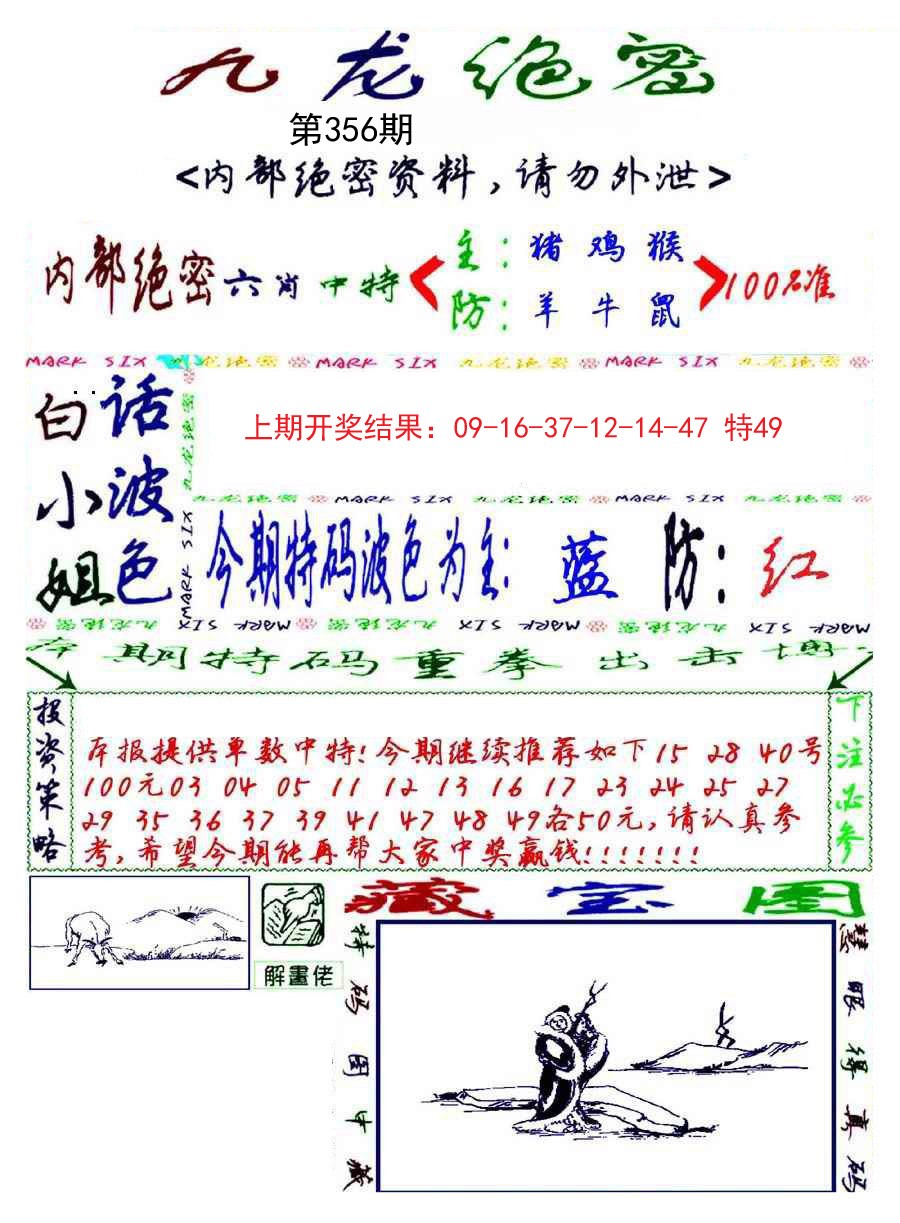 九龙绝密
第356期
<内部绝密资料,请勿外泄>
内部绝密六肖中特
主:猪鸡猴
防:羊牛鼠
100%准
MARK SIX 九龙绝密 MARK SIX 九龙绝密 MARK SIX 九龙绝密
九龙绝密
MARK SIX
白小姐
话波色
上期开奖结果：09-16-37-12-14-47 特49
九龙绝密 MARK SIX 九龙绝密 MARK SIX 九龙绝密
今期特码波色为主: 蓝 防: 红
九龙绝密 MARK SIX 九龙绝密 MARK SIX 九龙绝密 MARK SIX
本期特码重拳出击
投资策略
本报提供单数中特!今期继续推荐如下15 28 40号
100元03 04 05 11 12 13 16 17 23 24 25 27
29 35 36 37 39 41 47 48 49各50元,请认真参
考,希望今期能再帮大家中奖赢钱!!!!!!!
下注必参
解畫佬
藏宝图
特码图中藏
慧眼得真码